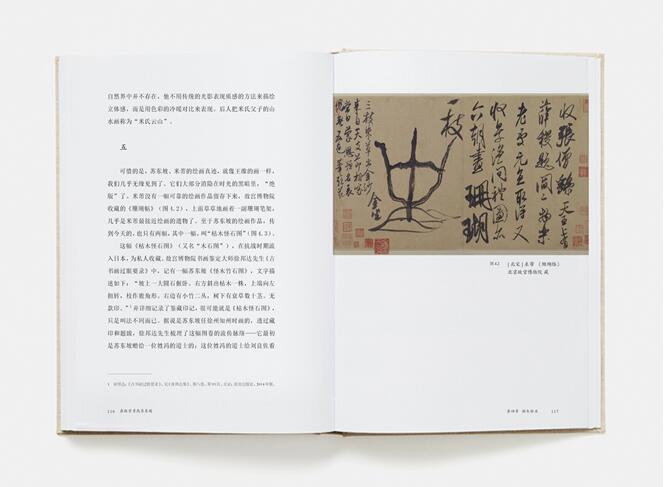 自然界中并不存在，他不用传统的光影表现质感的方法来描绘
立体感，而是用色彩的冷暖对比来表现。后人把米氏父子的山
水画称为“米氏云山”。
五
可惜的是，苏东坡、米芾的绘画真迹，就像王维的画一样，
我们几乎无缘见到了。它们大部分消隐在时光的黑暗里，“绝
版”了。米芾没有一幅可靠的绘画作品留存下来，故宫博物院
收藏的《珊瑚帖》（图4.2），上面草草地画着一副珊瑚笔架，
几乎是米芾最接近绘画的遗物了。至于苏东坡的绘画作品，传
到今天的，也只有两幅，其中一幅，叫“枯木怪石图”（图4.3）。
这幅《枯木怪石图》（又名“木石图”），在抗战时期流
入日本，为私人收藏。故宫博物院书画鉴定大师徐邦达先生《古
书画过眼要录》中，记有一幅苏东坡《怪木竹石图》，文字描
述如下：“坡上一大圆石偃卧。右方斜出枯木一株，上端向左
扭转，枝作鹿角形。右边有小竹二从，树下有衰草数十茎。无
款印。”1并详细记录了鉴藏印记，很可能就是《枯木怪石图》，
只是叫法不同而已。据说是苏东坡任徐州知州时画的，透过藏
印和题跋，徐邦达先生梳理了这幅图卷的流传脉络——它最初
是苏东坡赠给一位姓冯的道士的；这位姓冯的道士给刘良佐看
116 在故宫寻找苏东坡
收张僧繇天王上有
薛稷题阎二物乐
老处元直取得又
收景温问礼图亦
六朝画珊瑚
一枝
三枝朱草出金沙
来自天支节相家
当日蒙恩预名表
愧无五色笔头花
金坐
图4.2 ［北宋］米芾 《珊瑚帖》
北京故宫博物院 藏
117